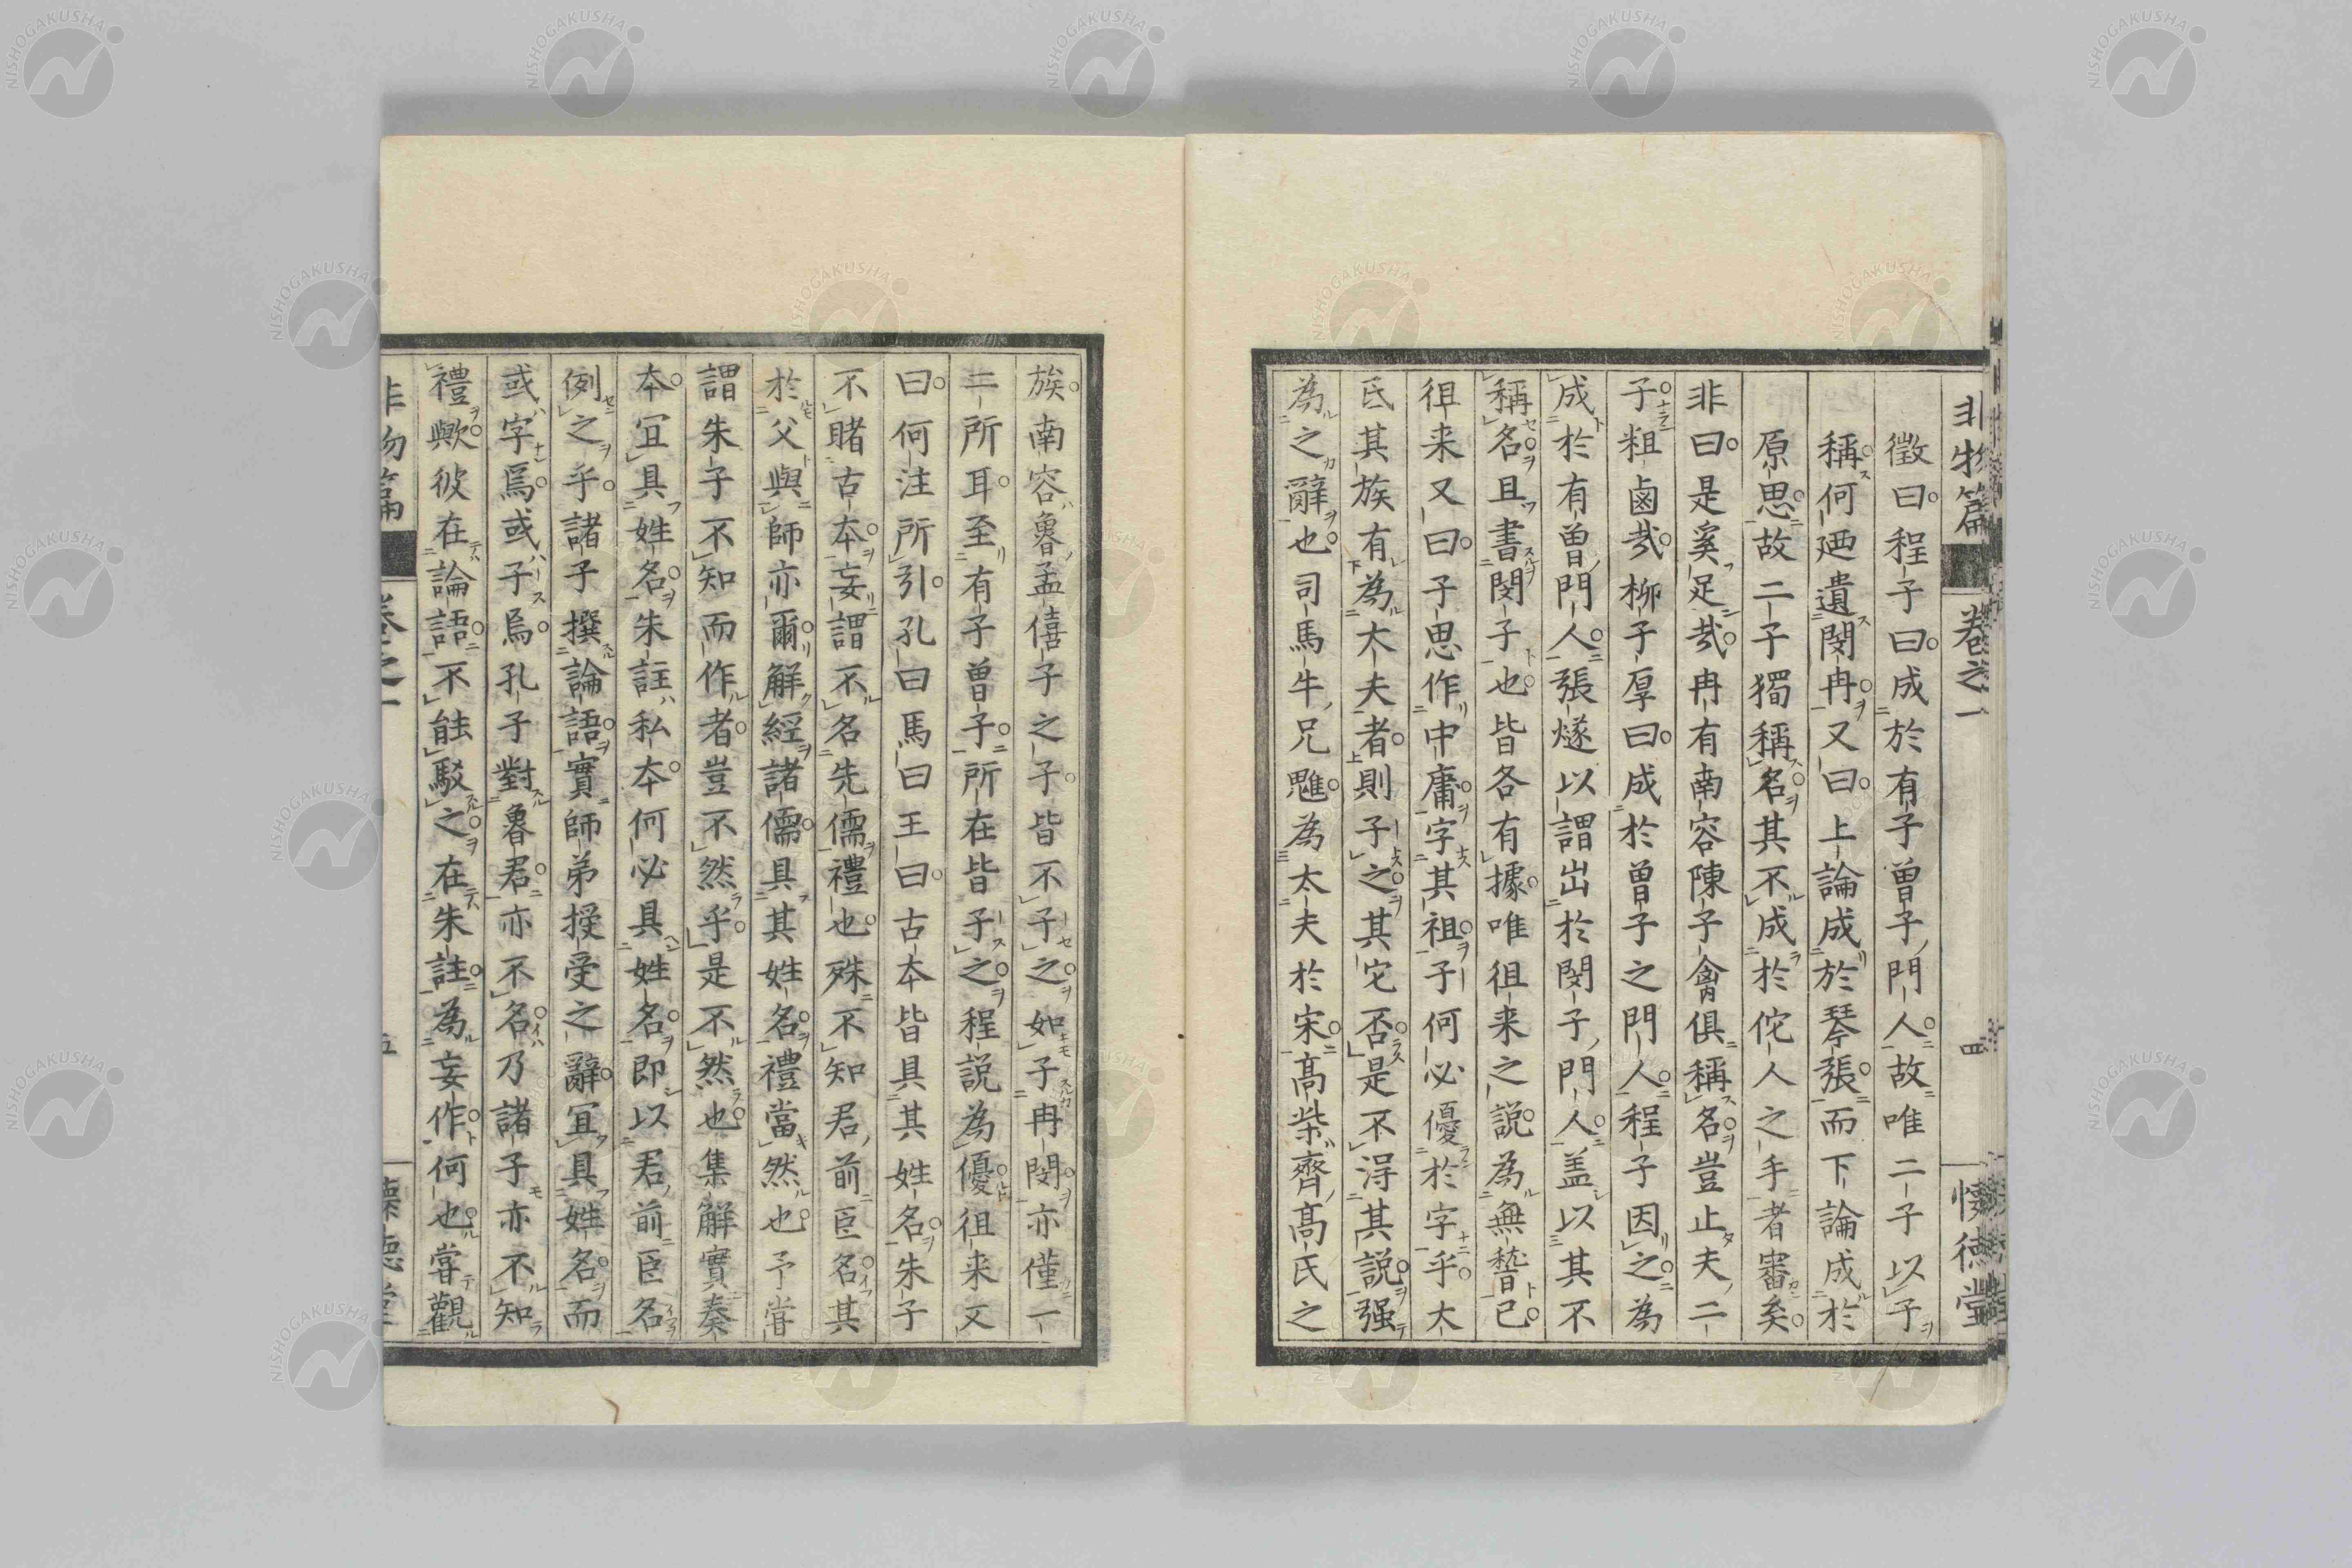 非物篇 卷之一 四 懷德堂
徵曰程子曰成於有子曾子門人故唯二子以子
稱何廼遺閔冉又曰上論成於琴張而下論成於
原思故二子獨稱名其不成於佗人之手者審矣
非曰是奚足㢤冉有南容陳子禽俱稱名豈止夫二
子粗鹵㢤柳子厚曰成於曾子之門人程子因之為
成於有曾門人張燧以謂出於閔子門人盖以其不
稱名且書閔子也皆各有據唯徂来之説為無稽已
徂来又曰子思作中庸字其祖子何必優於字乎大
氏其族有為大夫者則子之其它否是不淂其説强
為之辭也司馬牛兄魋為大夫於宋高柴齊高氏之
族南容魯孟僖子之子皆不子之如子冉閔亦僅一
二所耳至有子曾子所在皆子之程説為優徂来又
曰何注所引孔曰馬曰王曰古本皆具其姓名朱子
不睹古本妄謂不名先儒禮也殊不知君前臣名其
於父與師亦爾解經諸儒具其姓名禮當然也予嘗
謂朱子不知而作者豈不然乎是不然也集解實奏
本冝具姓名朱註私本何必具姓名即以君前臣名
例之乎諸子撰論語實師弟授受之辭冝具姓名而
或字焉或子焉孔子對魯君亦不名乃諸子亦不知
禮歟彼在論語不能駁之在朱註為妄作何也嘗觀
非物篇 卷之一 五 懷德堂